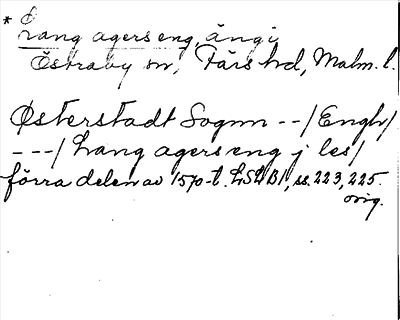 * Lang agers eng äng i
Östraby sn, Färs hd, Malm. l.
Østerstadt Sognn --/ Engh/
---/ Lang agers eng j les/
förra delen av 1570-t. LSt B1, ss. 223, 225.
orig.